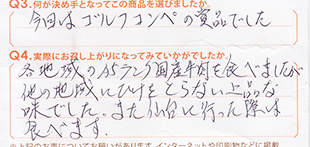 Q3.何が決め手となってこの商品を選びましたか
今回はゴルフコンペの賞品でした
Q4.実際にお召し上がりになってみていかがでしたか
各地域のA5ランク国産牛肉を食べましたが
他の地域にひけをとらない上品な
味でした。また仙台に行った際は
食べます。
上記のお声についてお願いがあります。インターネットや印刷物などに掲載